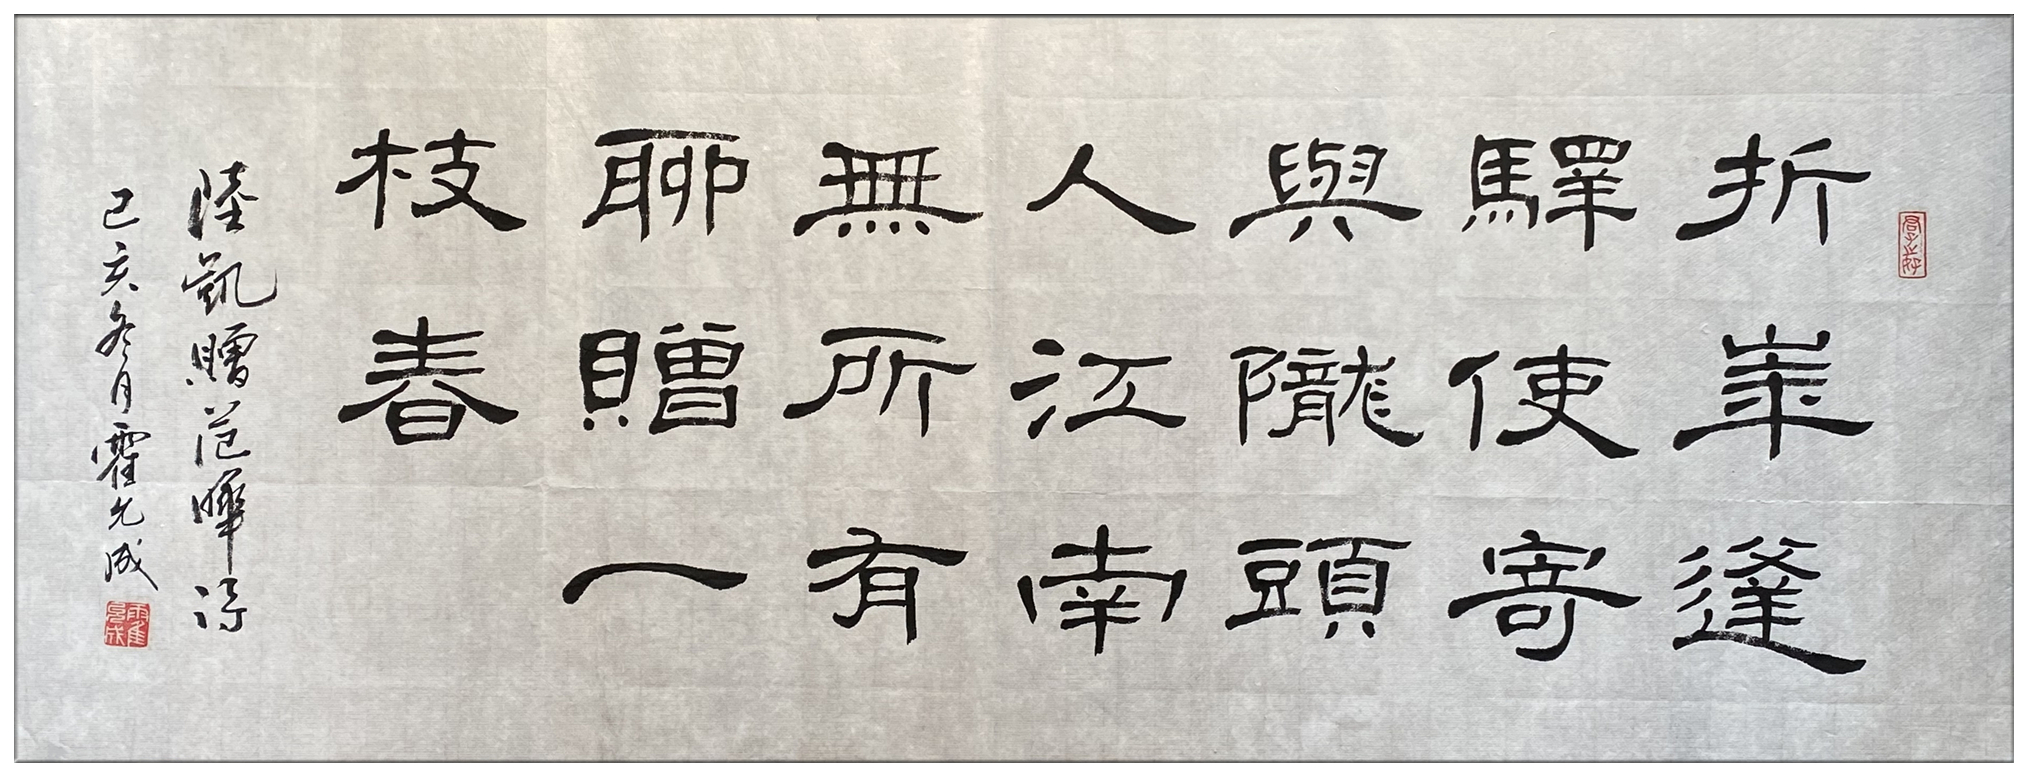 折崋逢
驛使寄
與隴頭
人江南
無所有
聊贈一
枝春
陸凱贈范曄詩
己亥冬月霍允成
霍允成